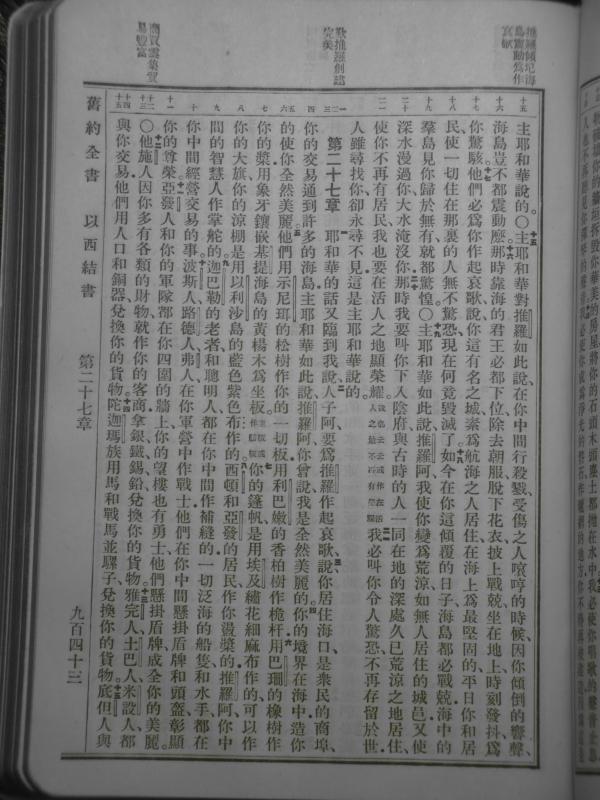 推羅傾圮海
島震動爲作
哀歌
歎推羅創建
完美
商賈雲集貿
易豐富
主耶和華說的〇主耶和華對推羅如此說在你中間行殺戮受傷之人唉哼的時候因你傾倒的響聲、
海島豈不都震動麽那時靠海的君王必都下位除去朝服脫下花衣披上戰兢坐在地上時刻發抖爲
你驚駭他們必爲你作起哀歌說你這有名之城素爲航海之人居住在海上爲最堅固的平日你和居
民使一切住在那裏的人無不驚恐現在何竟毀滅了如今在你這傾覆的日子海島都必戰兢海中的
羣島見你歸於無有就都驚惶〇主耶和華如此說推羅阿我使你變爲荒涼如無人居住的城邑又使
深水漫過你大水淹沒你那時我要叫你下入陰府與古時的人一同在地的深處久已荒涼之地居住、
使你不再有居民我也要在活人之地顯榮耀我必叫你令人驚恐不再存留於世
人雖尋找你卻永尋不見這是主耶和華說的
第二十七章 耶和華的話又臨到我說人子阿要爲推羅作起哀歌說你居住海口是衆民的商埠、
你的交易通到許多的海島主耶和華如此說推羅阿你曾說我是全然美麗的你的境界在海中造你
的使你全然美麗他們用示尼珥的松樹作你的一切板用利巴嫩的香柏樹作桅杆用巴珊的橡樹作
你的槳用象牙鑲嵌基提海島的黃楊木爲坐板你的篷帆是用埃及繡花細麻布作的可以作
你的大旗你的涼棚是用以利沙島的藍色紫色布作的西頓和亞發的居民作你盪槳的推羅阿你中
間的智慧人作掌舵的迦巴勒的老者和聰明人都在你中間作補縫的一切泛海的船隻和水手都在
你中間經營交易的事波斯人路德人弗人在你軍營中作戰士他們在你中間懸掛盾牌和頭盔彰顯
你的尊榮亞發人和你的軍隊都在你四圍的牆上你的望樓也有勇士他們懸掛盾牌成全你的美麗
〇他施人因你多有各類的財物就作你的客商拿銀鐵錫鉛兌換你的貨物雅完人土巴人米設人都
與你交易他們用人口和銅器兌換你的貨物陀迦瑪族用馬和戰馬並騾子兌換你的貨物底但人與
舊約全書 以西結書 第二十七章 九百四十三